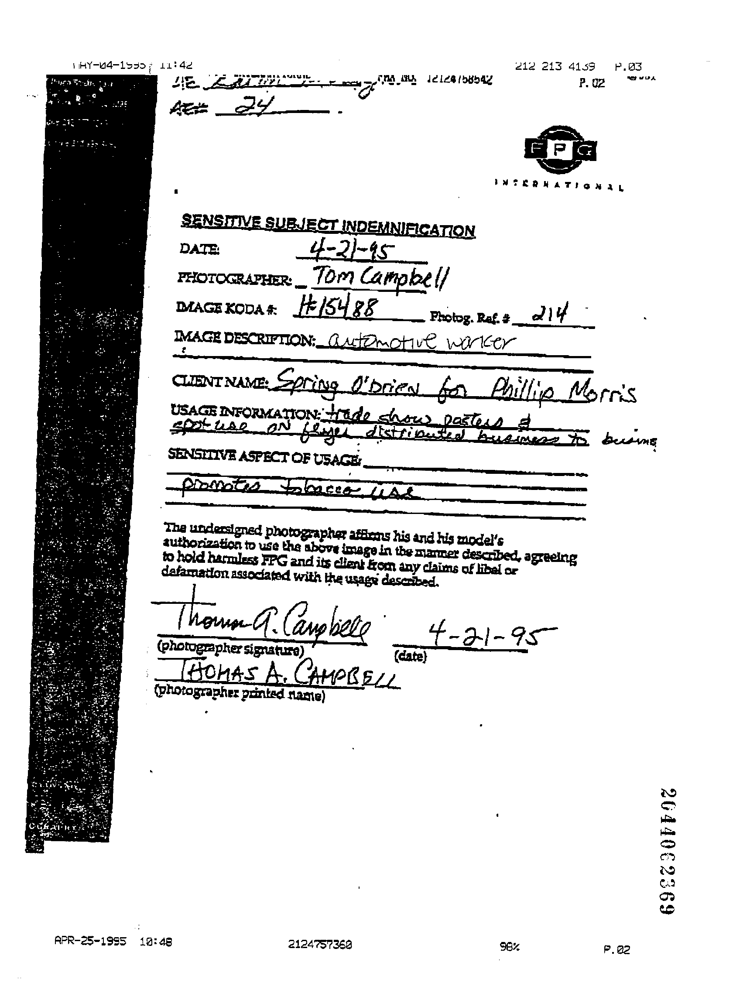 11:42 212 213 4139 P.03
12124758542 P.02
AE# 24
FPG
INTERNATIONAL
SENSITIVE SUBJECT INDEMNIFICATION
DATE: 4-21-95
PHOTOGRAPHER: Tom Campbell
IMAGE KODA #: #15488 Photog. Ref. # 214
IMAGE DESCRIPTION: automotive worker
CLIENT NAME: Spring O'Brien for Phillip Morris
USAGE INFORMATION: trade show posters &
spot use on flyer distributed business to busine
SENSITIVE ASPECT OF USAGE:
promotes tobacco use
The undersigned photographer affirms his and his model's
authorization to use the above image in the manner described, agreeing
to hold harmless FPG and its client from any claims of libel or
defamation associated with the usage described.
Thomas A. Campbell 4-21-95
(photographer signature) (date)
THOMAS A. CAMPBELL
(photographer printed name)
2044062369
APR-25-1995 10:48 2124757360 96% P.02